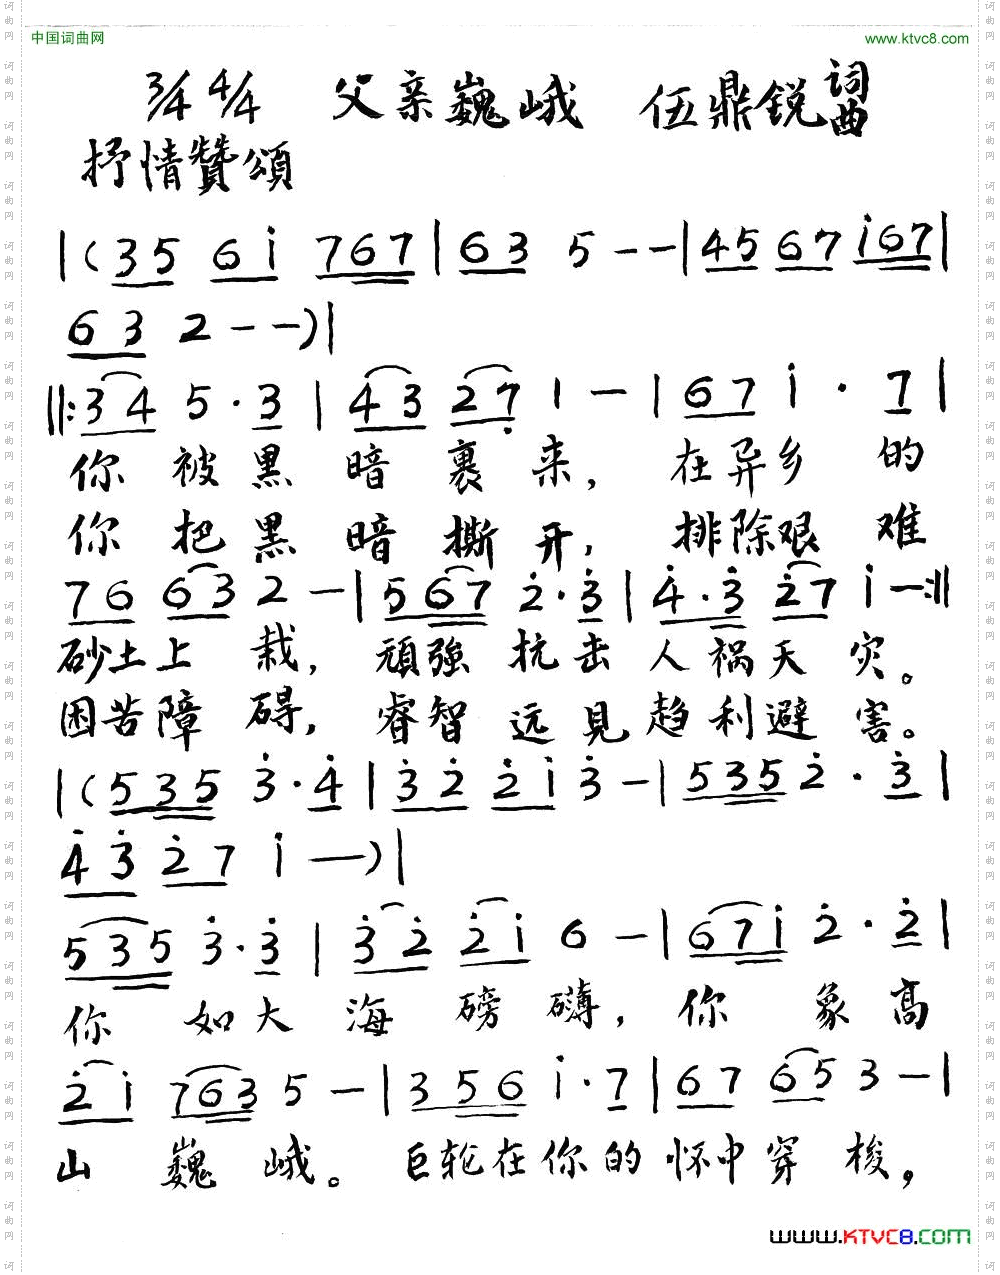 中国词曲网 www.ktvc8.com
3/4 4/4 父亲巍峨 伍鼎锐 词曲
抒情贊頌
|(35 6i 767|63 5--|45 67 i67|
63 2--)|
‖:34 5·3|43 27 1-|67 i·7|
你被黑暗裹来，在异乡的
你把黑暗撕开，排除艰难
76 63 2-|567 2·3|4·3 27 i-:‖
砂土上栽，頑強抗击人祸天灾。
困苦障碍，睿智远見趋利避害。
|(535 3·4|32 2i 3-|535 2·3|
43 27 i-)|
535 3·3|32 2i 6-|67i 2·2|
你如大海磅礴，你象高
2i 763 5-|356 i·7|67 65 3-|
山巍峨。巨轮在你的怀中穿梭，
www.KTVC8.com